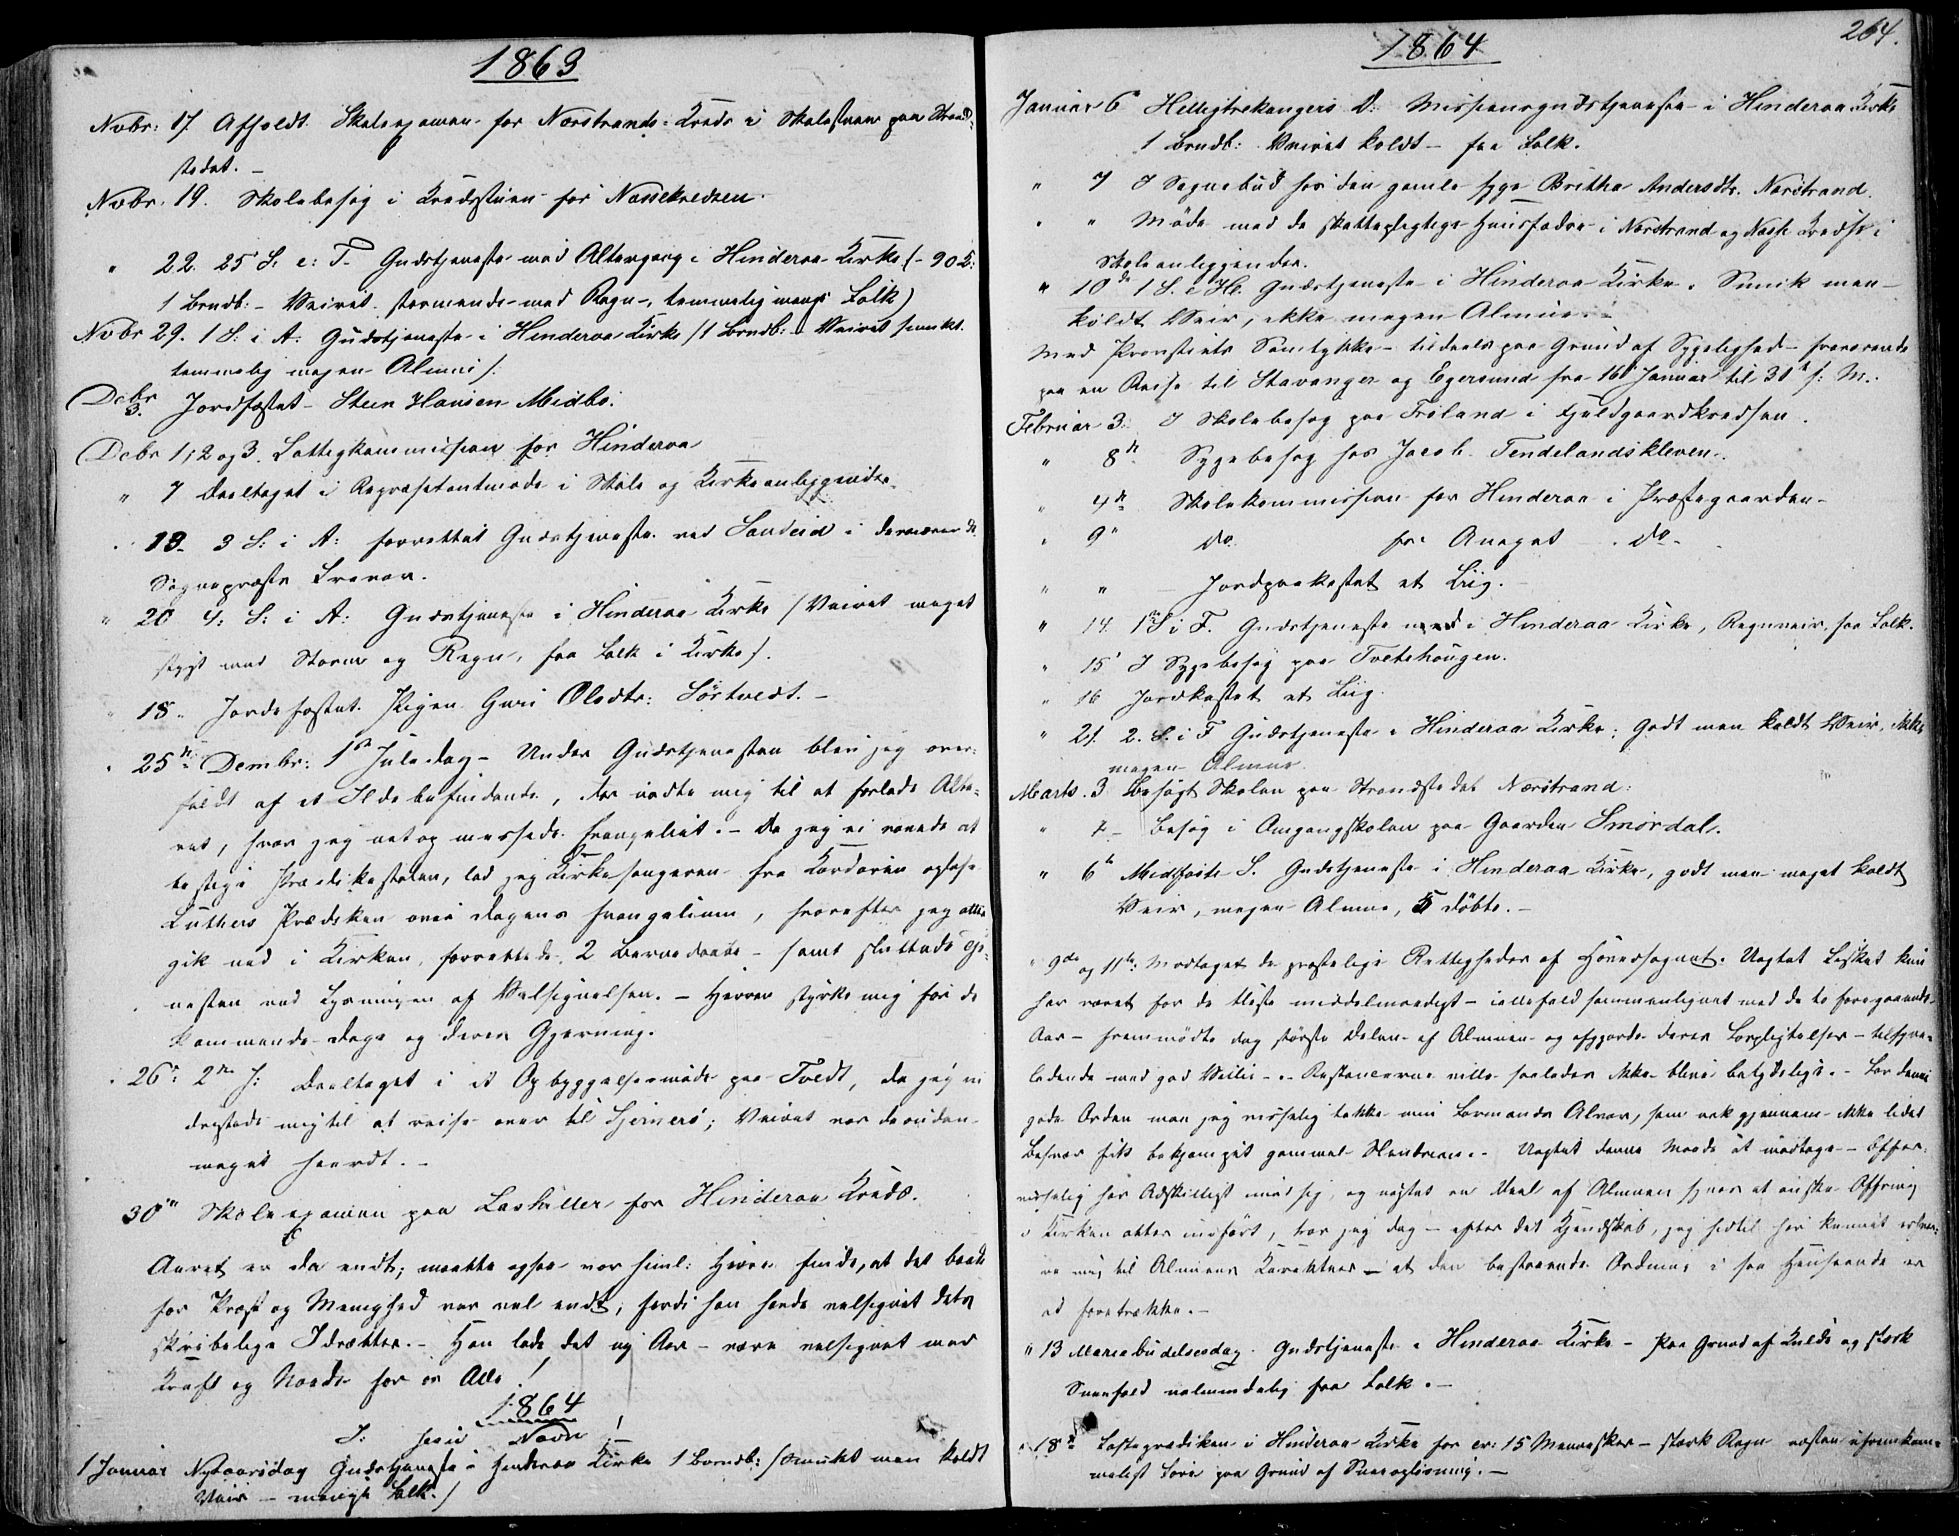 1863
Novbr: 17. Afholdt Skoleexamen for Nærstrands-Kreds i Skolestuen paa Strand-
stedet. –
Novbr. 19. Skolebesøg i Kredsstuen for Næssekredsen.
" 22. 25 S. e: T. Gudstjeneste med Altergang i Hinderaa Kirke (– 90 C:
1 Barnd: – Veiret stormende med Regn –, temmelig mange Folk)
Novbr 29. 1 S: i A: Gudstjeneste i Hinderaa Kirke (1 Barnd: Veiret smukt.
temmelig megen Almue).
Debr 3. Jordfæstet – Steen Hansen Medbø.
Debr 1, 2 og 3. Fattigkommission for Hinderaa
" 7 Deeltaget i Repræsetantmøde i Skole og Kirkeanliggender.
" 13. 3 S: i A: forrettet Gudstjeneste ved Sandeid i derværende
Sognepræsts Fravær.
" 20 4: S: i A: Gudstjeneste i Hinderaa Kirke (Veiret meget
stygt med Storm og Regn, faa Folk i Kirke).
" 18. Jordsfæstet Pigen Guri Olsdtr: Sørtvedt. –
" 25de Dembr: 1ste Juledag – Under Gudstjenesten blev jeg over-
faldt af et Ildebefindende, der nødte mig til at forlade Alte-
ret, hvor jeg netop messede Evangeliet. – Da jeg ei vovede at
bestige Prædikestolen, lod jeg Kirkesangeren fra Kordøren oplæse
Luthers Prædiken over Dagens Evangelium, hvorefter jeg atter
gik ned i Kirken, forrettede 2 Barnedaabe – samt sluttede Tje-
nesten ved Lysningen af Velsignelsen. – Herren styrke mig for de
kommende Dage og deres Gjerning.
" 26de 2den J: Deeltaget i et Opbyggelsesmøde paa Tvedt, da jeg ei
dristede mig til at reise over til Sjernerø; Veiret var desuden
meget haardt. –
30te Skoleexamen paa Laskiller for Hinderaa Kreds.
Aaret er da endt; maatte ogsaa vor himl: Herre finde, at det baade
for Præst og Menighed var vel endt, fordi han havde velsignet dets
skrøbelige Idrætter. – Han lade det ny Aar – være velsignet med
Kraft og Naade for os Alle!
1864
I: Jesu Navn!
1 Januar Nytaarsdag Gudstjeneste i Hinderaa Kirke 1 Barnd: (smukt men koldt
Veir – mange Folk.)
264.
1864
Januar 6te Helligtrekongers D: Missionsgudstjeneste i Hinderaa Kirke
1 Barndb: Veiret koldt – faa Folk.
" 7 I Sognebud hos den gamle syge Britha Andersdtr. Nærstrand.
" " Møde med de skattepligtige Huusfædre i Nærstrand og Næsse Kredse i
Skoleanliggender.
" 10de 1 S. e. H3. Gudstjeneste i Hinderaa Kirke. Smuk men
koldt Veir, ikke megen Almue. –
Med Provstens Samtykke – tildeels paa Grund af Sygelighed – fraværende
paa en Reise til Stavanger og Egersund fra 16de Januar til 31te s: M.:
Februar 3: I Skolebesøg paa Frøland i Fjeldgaardkredsen.
" 8de Sygebesøg hos Jacob Tendelandskleven.
" 4de Skolekommission for Hinderaa i Præstegaarden –
" 9de do. for Aneget – do –
" " Jordpaakastet et Liig. –
" 14. 1ste S i F. Gudstjeneste i Hinderaa Kirke, Regnveir, faa Folk.
" 15. I Sygebesøg paa Tvetehougen.
" 16 Jordkastet et Liig.
" 21. 2. S. i F Gudstjeneste i Hinderaa Kirke; Godt men koldt Veir, ikke
megen Almue.
Marts. 3 Besøgt Skolen paa Strandstedet Nærstrand.
" 2 – Besøg i Omgangsskolen paa Gaarden Smørdal.
" 6te Midfaste S. Gudstjeneste i Hinderaa Kirke, godt men meget koldt
Veir, megen Almue, 5 døbte. –
" 9de og 11te: Modtaget de præstelige Rettigheder af Hovedsognet. Uagtet Fisket kun
har været for de fleste middelmaadigt – iallefald sammenlignet med de to foregaaende
Aar – fremmødte dog største Delen af Almuen og afgjorde deres Forpligtelser – tilsyne-
ladende med god Villie –. Restancerne ville saaledes ikke blive betydelige. – For denne
gode Orden maa jeg visselig takke min Formands Alvor, som nok gjennem ikke lidet
Besvær fik bekjæmpet gammel Slendrian. – Uagtet denne Maade at modtage – Offer
visselig har Adskilligt imod sig, og uagtet en Deel af Almuen synes at ønske Offring
i Kirken atter indført, tror jeg dog – efter det Kjendskab, jeg hidtil har kunnet erhver-
ve mig til Almuens Karakteer – at den bestaaende Ordning i saa Henseende er
at foretrække. –
" 13 Mariæ budelsesdag. Gudstjeneste i Hinderaa Kirke – Paa Grund af Kulde og stærk
Sneefald ualmindelig faa Folk. –
" 18de Fasteprædiken i Hinderaa Kirke for cr: 15 Mennesker – stærk Regn næsten ufremkom-
meligt Føre paa Grund af Sneeopløsning. –